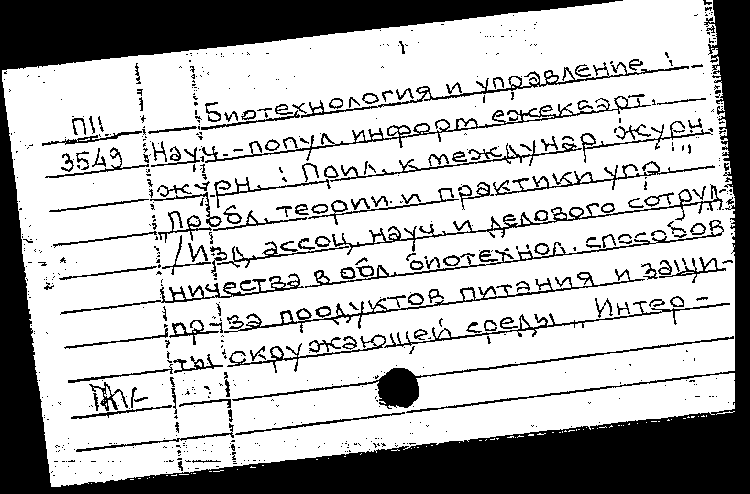 1
Биотехнология и управление :
П11
3549 Науч.-попул. информ. ежекварт.
журн. : Прил. к междунар. журн.
"Пробл. теории и практики упр."
/ Изд. ассоц. науч. и делового сотруд-
ничества в обл. биотехнол. способов
пр-ва продуктов питания и защи-
ты окружающей среды „Интер-